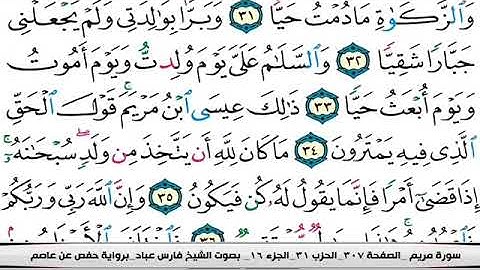 وَٱلزَّكَوٰةِ مَا دُمْتُ حَيًّا ٣١ وَبَرًّۢا بِوَٰلِدَتِى وَلَمْ يَجْعَلْنِى
جَبَّارًا شَقِيًّا ٣٢ وَٱلسَّلَٰمُ عَلَىَّ يَوْمَ وُلِدتُّ وَيَوْمَ أَمُوتُ
وَيَوْمَ أُبْعَثُ حَيًّا ٣٣ ذَٰلِكَ عِيسَى ٱبْنُ مَرْيَمَ ۚ قَوْلَ ٱلْحَقِّ
ٱلَّذِى فِيهِ يَمْتَرُونَ ٣٤ مَا كَانَ لِلَّهِ أَن يَتَّخِذَ مِن وَلَدٍ ۖ سُبْحَٰنَهُۥٓ ۚ
إِذَا قَضَىٰٓ أَمْرًا فَإِنَّمَا يَقُولُ لَهُۥ كُن فَيَكُونُ ٣٥ وَإِنَّ ٱللَّهَ رَبِّى وَرَبُّكُمْ
٣٦
سورة مريم _الصفحة ٣٠٧_الحزب ٣١_الجزء ١٦_ بصوت الشيخ فارس عباد_برواية حفص عن عاصم